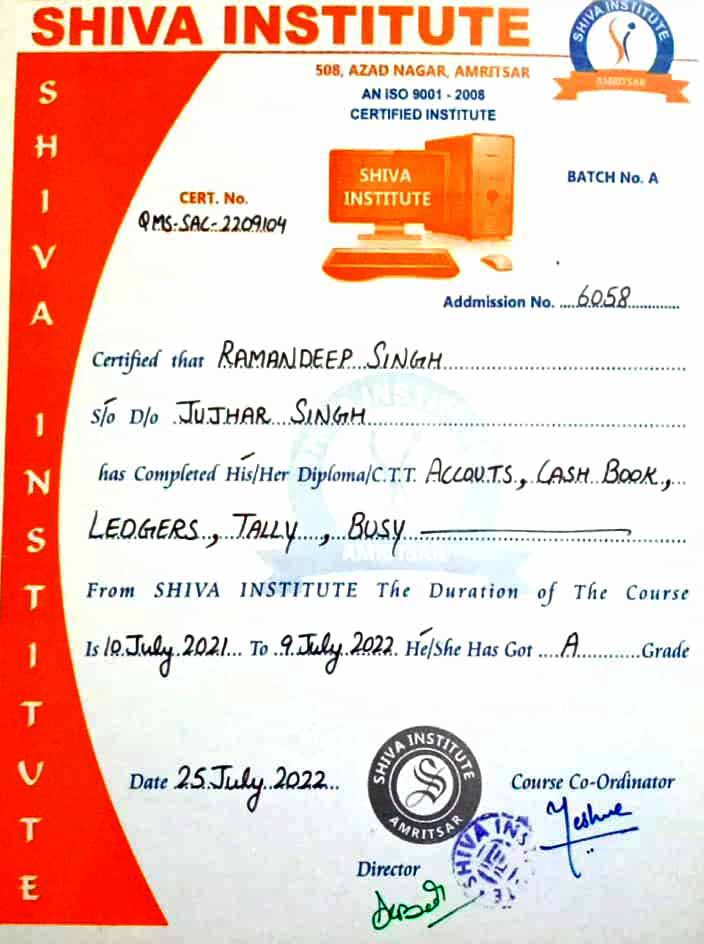 SHIVA INSTITUTE
SHIVA INSTITUTE
AMRITSAR
508, AZAD NAGAR, AMRITSAR
AN ISO 9001 - 2008
CERTIFIED INSTITUTE
SHIVA INSTITUTE
SHIVA
INSTITUTE
BATCH No. A
CERT. No.
QMS-SAC-2209104
Addmission No. ....6058..............
Certified that RAMANDEEP SINGH
S/o D/o JUJHAR SINGH
has Completed His/Her Diploma/C.T.T. ACCOUTS, CASH BOOK,
LEDGERS, TALLY, BUSY
AMRITSAR
From SHIVA INSTITUTE The Duration of The Course
Is 10 July 2021... To 9 July 2022 He/She Has Got ....A...........Grade
Date 25 July 2022..
SHIVA INSTITUTE
AMRITSAR
Course Co-Ordinator
SHIVA INS
Director